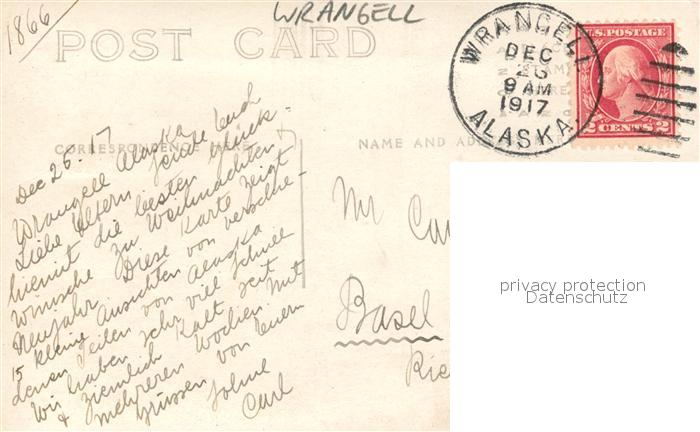 1866
WRANGELL
POST CARD
WRANGELL
DEC
26
9 AM
1917
ALASKA.
U.S. POSTAGE
2 CENTS 2
CORRESPONDENCE HERE
NAME AND ADD
Dec 26. 17
Wrangell Alaska
Liebe Eltern sende Euch
hiemit die besten Glück-
wünsche zu Weihnachten &
Neujahr Diese Karte zeigt
15 kleine Ansichten von verschie-
denen Teilen von Alaska
Wir haben sehr viel Schnee
& ziemlich Kalt seit
mehreren Wochen Mit
Grüssen von Euerm
Sohne
Carl
Mr Ca
Basel
Rie
privacy protection
Datenschutz